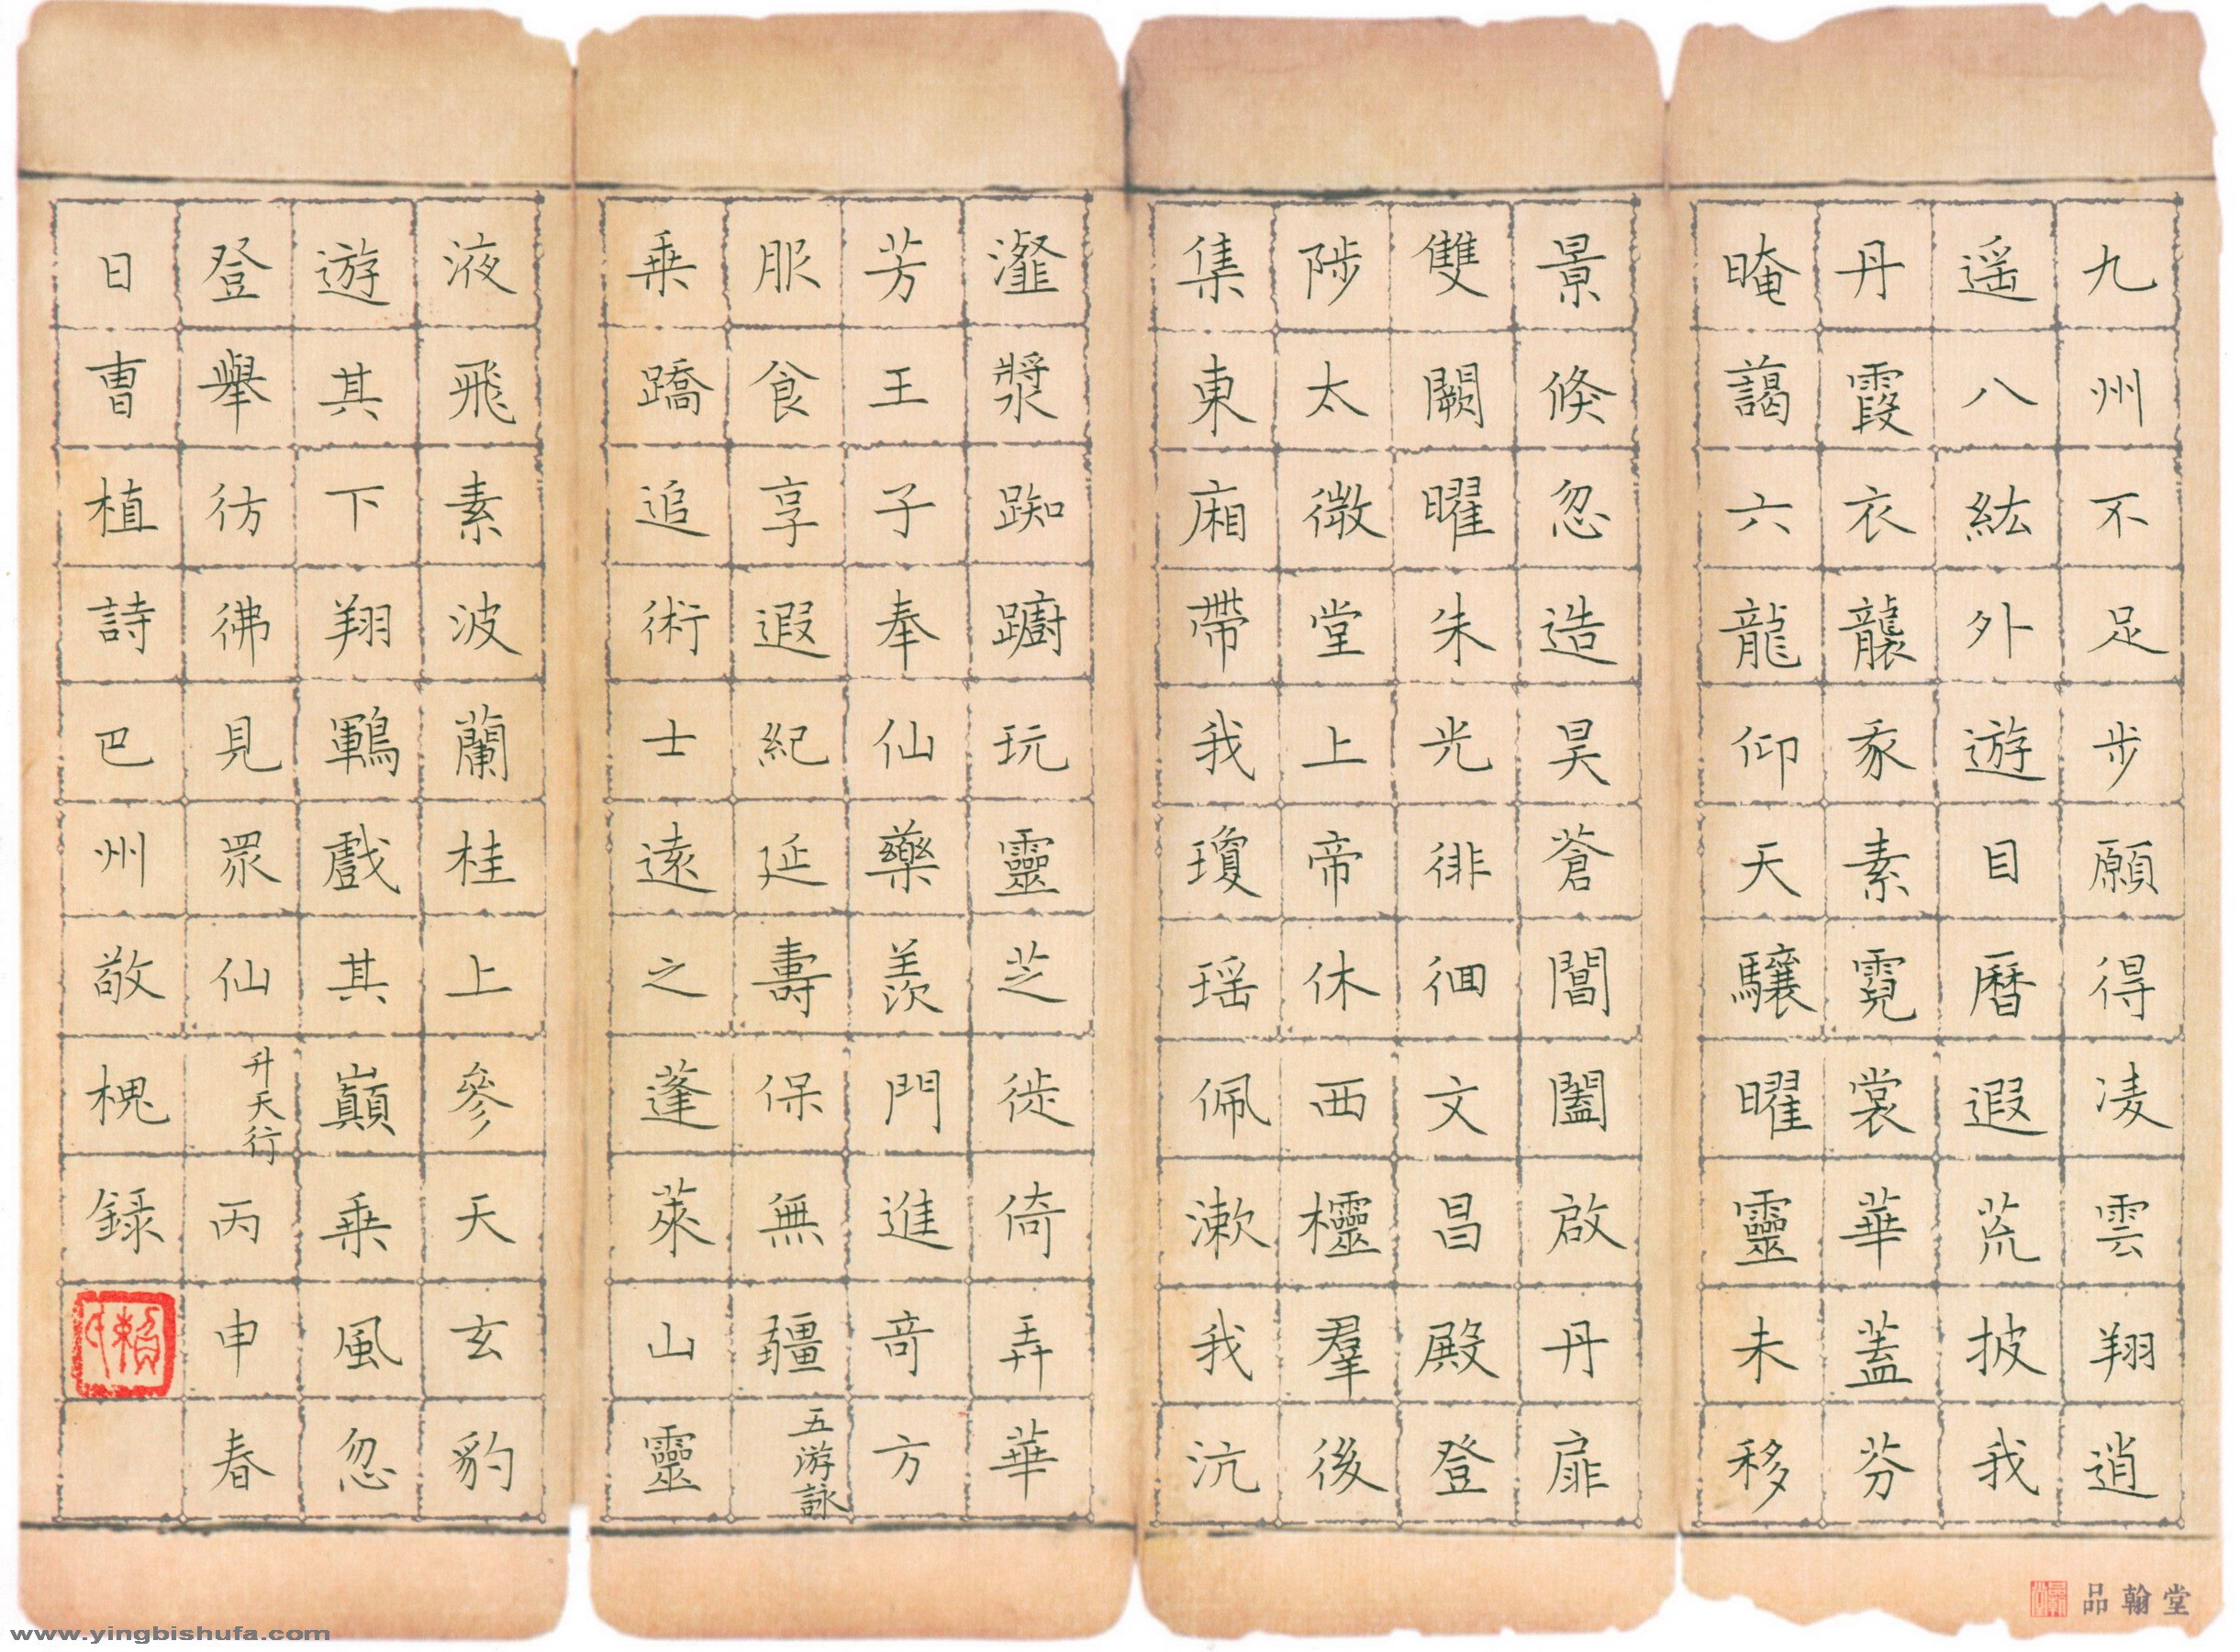 九州不足步願得凌雲翔逍
遥八紘外遊目曆遐荒披我
丹霞衣襲我素霓裳華蓋芬
晻藹六龍仰天驤曜靈未移
景倏忽造昊蒼閶闔啟丹扉
雙闕曜朱光徘徊文昌殿登
陟太微堂上帝休西櫺羣後
集東廂帶我瓊瑶佩漱我沆
瀣漿踟躕玩靈芝徙倚弄華
芳王子奉仙藥羨門進奇方
服食享遐紀延壽保無疆五游詠
乗蹻追術士遠之蓬萊山靈
液飛素波蘭桂上參天玄豹
遊其下翔鶤戲其巔乗風忽
登舉彷彿見眾仙升天行丙申春
日曹植詩巴州敬槐録
品翰堂
www.yingbishufa.com